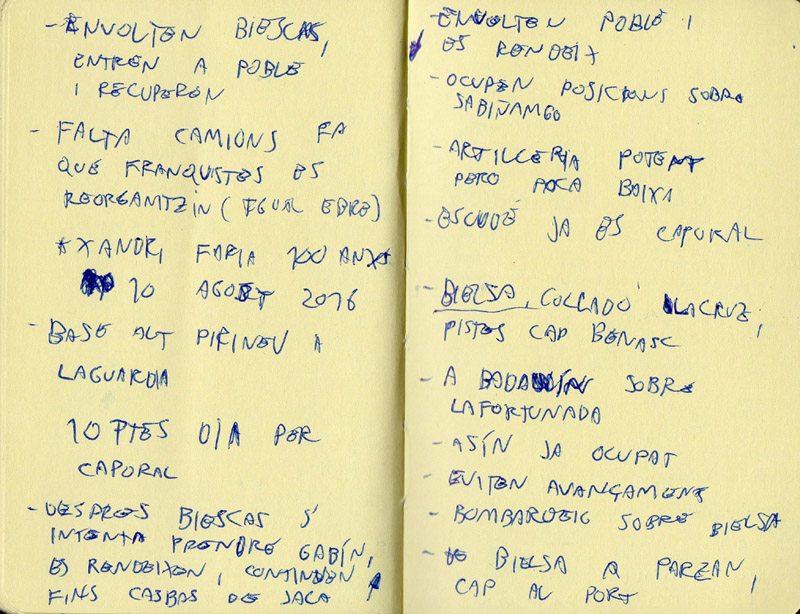 - ENVOLTEN BIESCAS,
ENTREN A POBLE
I RECUPEREN
- FALTA CAMIONS FA
QUE FRANQUISTES ES
REORGANITZIN (IGUAL EBRE)
* XANDRI FARIA 100 ANYS
10 AGOST 2016
- BASE ALT PIRINEU A
LAGUARDIA
10 PTES DIA PER
CAPORAL
- DESPRES BIESCAS S'
INTENTA PRENDRE GABÍN,
ES RENDEIXEN, CONTINUEN
FINS CASBAS DE JACA
- ENVOLTEN POBLE I
ES RENDEIX
- OCUPEN POSICIONS SOBRE
SABIÑANIGO
- ARTILLERIA POTENT
PERO POCA BAIXA
- ESCUDÉ JA ES CAPORAL
- BIELSA, COLLADO LACRUZ,
PISTES CAP BENASC
- A SOBRE
LAFORTUNADA
- ASÍN JA OCUPAT
- EVITEN AVANÇAMENT
- BOMBARDEIG SOBRE BIELSA
- DE BIELSA A PARZAN,
CAP AL PORT